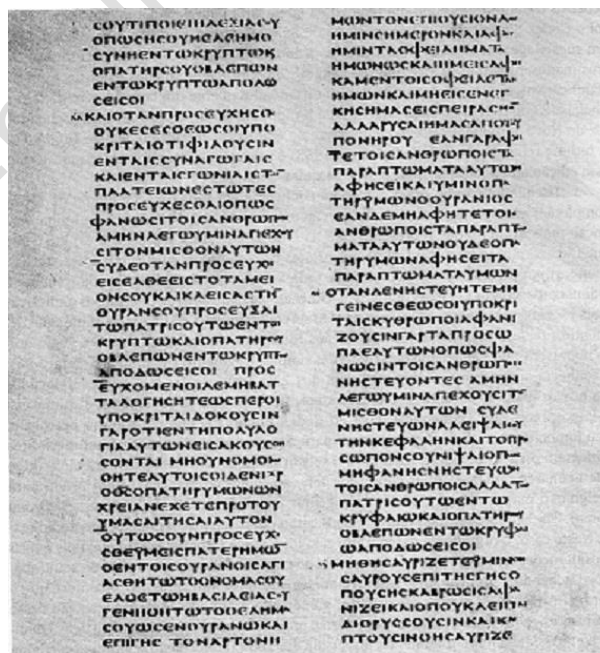 ϹΟΥΤΙΠΟΙΕΙΗΔΕΞΙΑϹΟΥ
ΟΠΩϹΗϹΟΥΗΕΛΕΗΜΟ
ϹΥΝΗΕΝΤΩΚΡΥΠΤΩΚ
ΟΠΑΤΗΡϹΟΥΟΒΛΕΠΩΝ
ΕΝΤΩΚΡΥΠΤΩΑΠΟΔΩ
ϹΕΙϹΟΙ
ΚΑΙΟΤΑΝΠΡΟϹΕΥΧΗϹΘ
ΟΥΚΕϹΕϹΘΕΩϹΟΙΥΠΟ
ΚΡΙΤΑΙΟΤΙΦΙΛΟΥϹΙΝ
ΕΝΤΑΙϹϹΥΝΑΓΩΓΑΙϹ
ΚΑΙΕΝΤΑΙϹΓΩΝΙΑΙϹΤ
ΠΛΑΤΕΙΩΝΕϹΤΩΤΕϹ
ΠΡΟϹΕΥΧΕϹΘΑΙΟΠΩϹ
ΦΑΝΩϹΙΤΟΙϹΑΝΘΡΩΠ
ΑΜΗΝΛΕΓΩΥΜΙΝΑΠΕΧΟΥ
ϹΙΤΟΝΜΙϹΘΟΝΑΥΤΩΝ
ϹΥΔΕΟΤΑΝΠΡΟϹΕΥΧΗ
ΕΙϹΕΛΘΕΕΙϹΤΟΤΑΜΕΙ
ΟΝϹΟΥΚΑΙΚΛΕΙϹΑϹΤΗ
ΘΥΡΑΝϹΟΥΠΡΟϹΕΥΞΑΙ
ΤΩΠΑΤΡΙϹΟΥΤΩΕΝΤΩ
ΚΡΥΠΤΩΚΑΙΟΠΑΤΗΡϹΟΥ
ΟΒΛΕΠΩΝΕΝΤΩΚΡΥΠΤ
ΑΠΟΔΩϹΕΙϹΟΙ ΠΡΟϹ
ΕΥΧΟΜΕΝΟΙΔΕΜΗΒΑΤ
ΤΑΛΟΓΗϹΗΤΕΩϹΠΕΡΟΙ
ΥΠΟΚΡΙΤΑΙΔΟΚΟΥϹΙΝ
ΓΑΡΟΤΙΕΝΤΗΠΟΛΥΛΟ
ΓΙΑΑΥΤΩΝΕΙϹΑΚΟΥϹΘΗ
ϹΟΝΤΑΙ ΜΗΟΥΝΟΜΟΙ
ΘΗΤΕΑΥΤΟΙϹΟΙΔΕΝΓΑΡ
ΟΘϹΟΠΑΤΗΡΥΜΩΝΩΝ
ΧΡΕΙΑΝΕΧΕΤΕΠΡΟΤΟΥ
ΥΜΑϹΑΙΤΗϹΑΙΑΥΤΟΝ
ΟΥΤΩϹΟΥΝΠΡΟϹΕΥΧΕ
ϹΘΕΥΜΕΙϹΠΑΤΕΡΗΜΩ
ΟΕΝΤΟΙϹΟΥΡΑΝΟΙϹΑΓΙ
ΑϹΘΗΤΩΤΟΟΝΟΜΑϹΟΥ
ΕΛΘΕΤΩΗΒΑϹΙΛΕΙΑϹΟΥ
ΓΕΝΗΘΗΤΩΤΟΘΕΛΗΜΑ
ϹΟΥΩϹΕΝΟΥΡΑΝΩΚΑΙ
ΕΠΙΓΗϹ ΤΟΝΑΡΤΟΝΗ
ΜΩΝΤΟΝΕΠΙΟΥϹΙΟΝΔ
ΗΜΙΝϹΗΜΕΡΟΝΚΑΙΑΦ
ΗΜΙΝΤΑΟΦΕΙΛΗΜΑΤΑ
ΗΜΩΝΩϹΚΑΙΗΜΕΙϹΑΦ
ΚΑΜΕΝΤΟΙϹΟΦΕΙΛΕΤΑ
ΗΜΩΝΚΑΙΜΗΕΙϹΕΝΕΓ
ΚΗϹΗΜΑϹΕΙϹΠΕΙΡΑϹΜ
ΑΛΛΑΡΥϹΑΙΗΜΑϹΑΠΟΤΟΥ
ΠΟΝΗΡΟΥ ΕΑΝΓΑΡΑΦΗ
ΤΕΤΟΙϹΑΝΘΡΩΠΟΙϹΤΑ
ΠΑΡΑΠΤΩΜΑΤΑΑΥΤΩΝ
ΑΦΗϹΕΙΚΑΙΥΜΙΝΟΠΑ
ΤΗΡΥΜΩΝΟΟΥΡΑΝΙΟϹ
ΕΑΝΔΕΜΗΑΦΗΤΕΤΟΙϹ
ΑΝΘΡΩΠΟΙϹΤΑΠΑΡΑΠΤ
ΜΑΤΑΑΥΤΩΝΟΥΔΕΟΠΑ
ΤΗΡΥΜΩΝΑΦΗϹΕΙΤΑ
ΠΑΡΑΠΤΩΜΑΤΑΥΜΩΝ
ΟΤΑΝΔΕΝΗϹΤΕΥΗΤΕΜΗ
ΓΕΙΝΕϹΘΕΩϹΟΙΥΠΟΚΡΙ
ΤΑΙϹΚΥΘΡΩΠΟΙΑΦΑΝΙ
ΖΟΥϹΙΝΓΑΡΤΑΠΡΟϹΩ
ΠΑΕΑΥΤΩΝΟΠΩϹΦΑ
ΝΩϹΙΝΤΟΙϹΑΝΘΡΩΠ
ΝΗϹΤΕΥΟΝΤΕϹ ΑΜΗΝ
ΛΕΓΩΥΜΙΝΑΠΕΧΟΥϹΙΤ
ΜΙϹΘΟΝΑΥΤΩΝ ϹΥΔΕ
ΝΗϹΤΕΥΩΝΑΛΕΙΨΑΙϹΟΥ
ΤΗΝΚΕΦΑΛΗΝΚΑΙΤΟΠΡ
ϹΩΠΟΝϹΟΥΝΙΨΑΙΟΠ
ΜΗΦΑΝΗϹΝΗϹΤΕΥΩ
ΤΟΙϹΑΝΘΡΩΠΟΙϹΑΛΛΑΤ
ΠΑΤΡΙϹΟΥΤΩΕΝΤΩ
ΚΡΥΦΑΙΩΚΑΙΟΠΑΤΗΡϹΟΥ
ΟΒΛΕΠΩΝΕΝΤΩΚΡΥΦΑΙ
ΩΑΠΟΔΩϹΕΙϹΟΙ
ΜΗΘΗϹΑΥΡΙΖΕΤΕΥΜΙΝ
ϹΑΥΡΟΥϹΕΠΙΤΗϹΓΗϹΟ
ΠΟΥϹΗϹΚΑΙΒΡΩϹΙϹΑΦΑ
ΝΙΖΕΙΚΑΙΟΠΟΥΚΛΕΠΤ
ΔΙΟΡΥϹϹΟΥϹΙΝΚΑΙΚΛΕ
ΠΤΟΥϹΙΝΘΗϹΑΥΡΙΖΕ